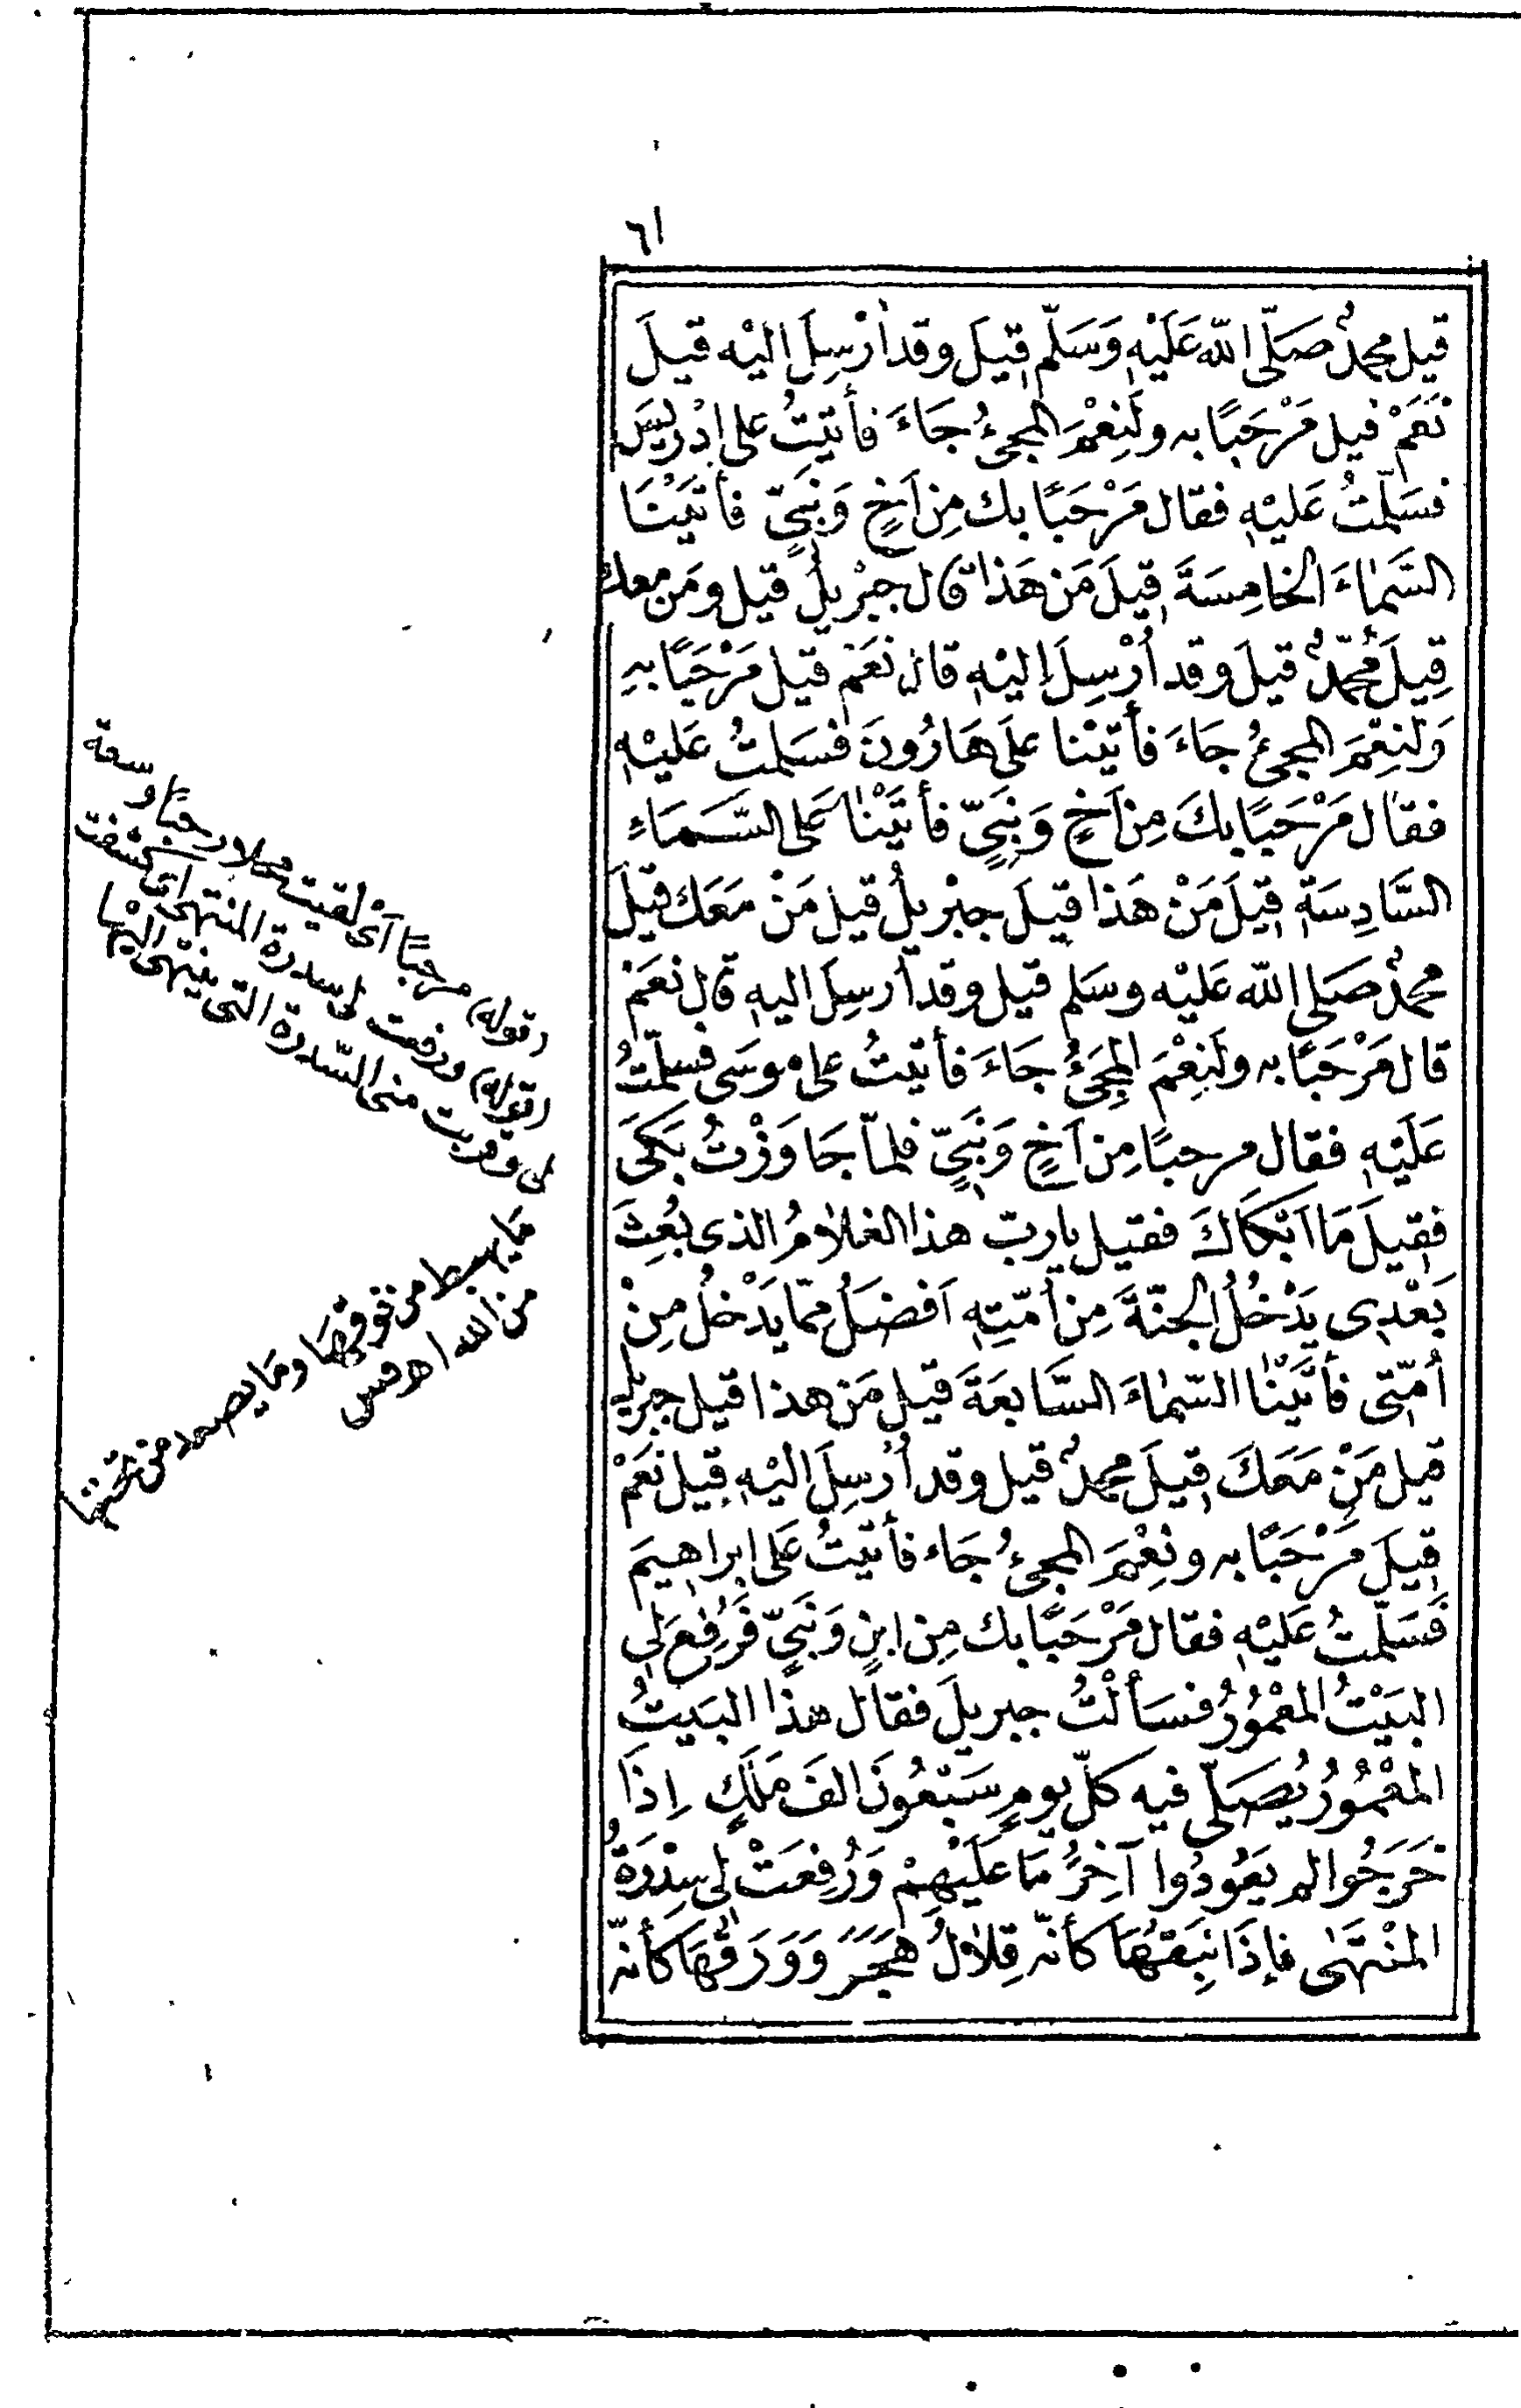 ٦١
قيل محمدٌ صَلّى الله عَلَيْهِ وَسَلّم قِيلَ وقد أُرْسِلَ اليْه قيلَ
نَعَمْ قيل مَرْحَبًا به ولَنِعْمَ المجئُ جَاءَ فأتيتُ على إدْرِيسَ
فسَلّمتُ عَليْهِ فقال مَرْحَبًا بك مِن اَخٍ وَنَبِيٍّ فأتَيْنَا
السَّمَاءَ الخامِسَةَ قِيلَ مَن هَذا قال جِبْرِيلُ قيل ومَن معك
قِيلَ مُحمّدٌ قيلَ وقد أُرْسِلَ إليْهِ قال نَعَمْ قيل مَرْحَبًا بِهِ
وَلَنِعْمَ المجئُ جَاءَ فأتيْنا علَى هَارُونَ فسَلمتُ عَليْهِ
فقال مَرْحَبًا بكَ مِن اَخٍ وَنَبِيٍّ فأتَيْنَا عَلى السَّمَاءِ
السَّادِسَةِ قِيلَ مَنْ هَذا قيلَ جِبْرِيلُ قيل مَنْ مَعَك قيلَ
محمدٌ صَلى الله عَليْه وسَلم قيل وقد أُرسِلَ اليهِ قال نعَمْ
قال مَرْحَبًا به ولَنِعْمَ المجِئُ جَاءَ فأتيتُ على موسَى فسلّمتُ
عَلَيْهِ فقال مرحبًا مِن اَخٍ وَنَبِيٍّ فلمّا جَاوَزْتُ بَكَى
فقِيلَ مَا اَبْكَاكَ فقيل يا ربّ هذا الغلامُ الذى بُعِثَ
بَعْدِى يَدْخُلُ الجنّةَ مِن أُمّتِهِ اَفضَلُ مِمّا يَدْخلُ مِنْ
أُمّتِى فأتَيْنَا السّمَاءَ السَّابعَةَ قيل مَن هذا قيل جبريل
قيل مَنْ مَعَكَ قِيلَ محمدٌ قيل وقد أُرسِلَ اليْهِ قِيل نَعَمْ
قِيلَ مَرْحَبًا به ونِعْمَ المجئُ جَاء فأتيتُ عَلى إبراهيمَ
فَسَلّمتُ عَليْهِ فقال مَرْحَبًا بك مِن ابنٍ وَنَبِيٍّ فَرُفِعَ لِى
البَيْتُ المَعْمُورُ فسَألْتُ جبريلَ فقال هذا البَيتُ
المَعْمُورُ يُصَلّى فيه كلّ يومٍ سَبْعُونَ الفَ مَلَكٍ اِذَا
خَرَجُوا لم يَعُودُوا آخِرُ مَا عَلَيْهِمْ وَرُفِعَتْ لى سِدْرَةُ
المنْتَهَى فإذَا نَبِقُهَا كأنّه قِلَالُ هَجَرَ وَوَرَقُهَا كأنّه
(قوله) مرحبًا أىْ لقيت محلا رحبًا وسعة
(قوله) ورفعت لى سدرة المنتهى اى كشفت
لى وقربت منى السّدرة التى ينتهى اليْها
مَا يهبط من فوقِهَا ومَا يصعد من تحتها
من الله اھ